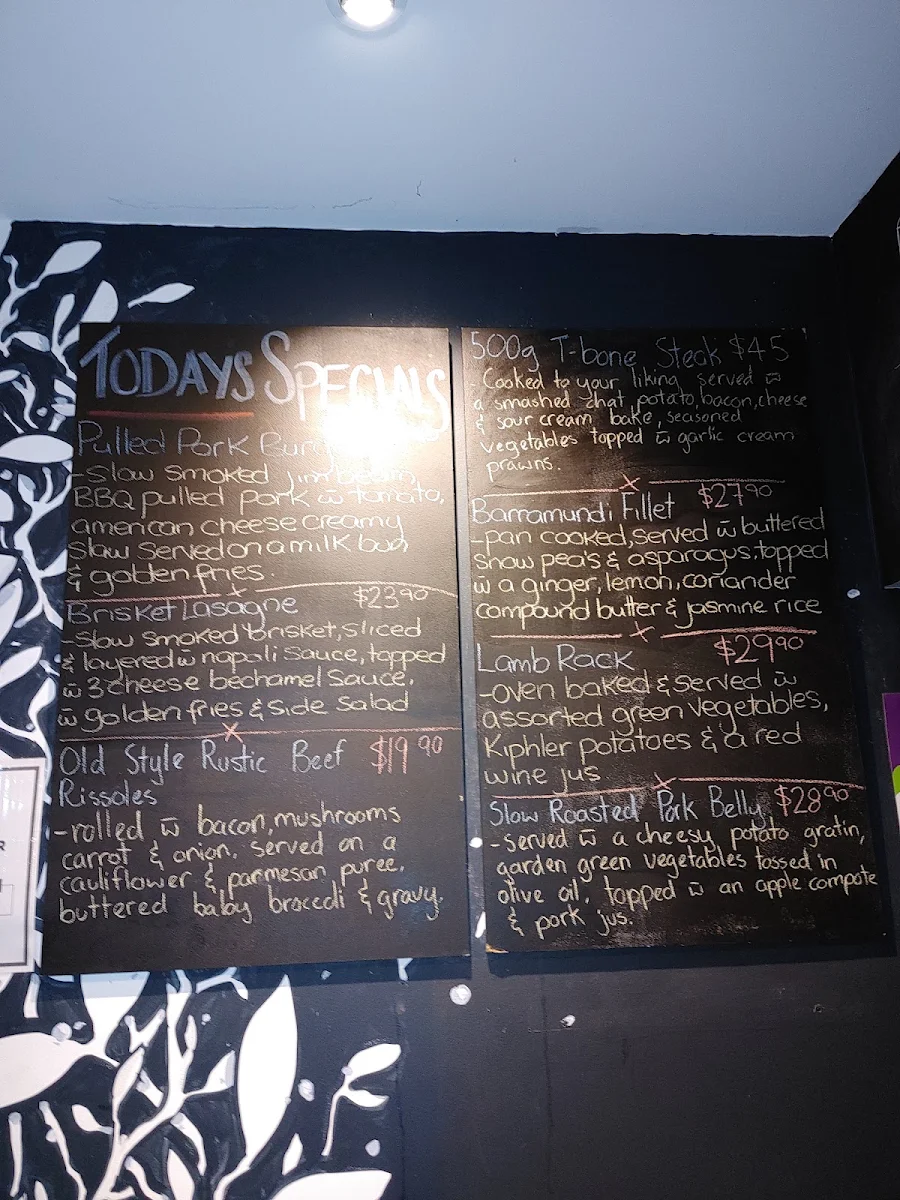 TODAYS SPECIALS
Pulled Pork
-Slow Smoked Jim beam,
BBQ pulled pork w̄ tomato,
american cheese creamy
slaw Served on a milk bun
& golden fries.
Brisket Lasagne $23⁹⁰
-Slow smoked brisket, sliced
& layered w̄ napoli Sauce, topped
w̄ 3 cheese bechamel Sauce.
w̄ golden fries & Side Salad
Old Style Rustic Beef $19⁹⁰
Rissoles
-rolled w̄ bacon, mushrooms
carrot & onion. served on a
cauliflower & parmesan puree.
buttered baby broccoli & gravy.
500g T-bone Steak $45
- Cooked to your liking served w̄
a smashed chat potato, bacon, cheese
& sour cream bake, seasoned
vegetables topped w̄ garlic cream
prawns.
Barramundi Fillet $27⁹⁰
-pan cooked, served w̄ buttered
snow pea's & asparagus. topped
w̄ a ginger, lemon, coriander
compound butter & jasmine rice
Lamb Rack $29⁹⁰
-oven baked & served w̄
assorted green vegetables,
Kiphler potatoes & a red
wine jus
Slow Roasted Pork Belly $28⁹⁰
-served w̄ a cheesy potato gratin,
garden green vegetables tossed in
olive oil. topped w̄ an apple compote
& pork jus.